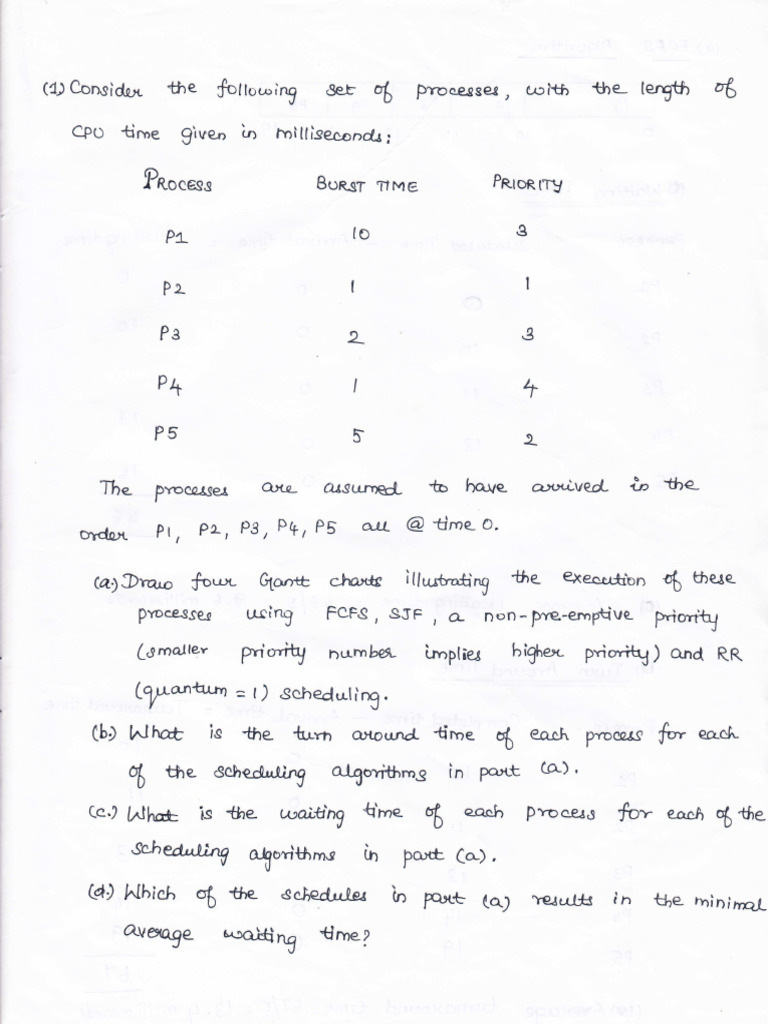 (1) Consider the following set of processes, with the length of
CPU time given in milliseconds:
PROCESS BURST TIME PRIORITY
P1 10 3
P2 1 1
P3 2 3
P4 1 4
P5 5 2
The processes are assumed to have arrived in the
order P1, P2, P3, P4, P5 all @ time 0.
(a.) Draw four Gantt charts illustrating the execution of these
processes using FCFS, SJF, a non-pre-emptive priority
(smaller priority number implies higher priority) and RR
(quantum = 1) scheduling.
(b.) What is the turn around time of each process for each
of the scheduling algorithms in part (a).
(c.) What is the waiting time of each process for each of the
scheduling algorithms in part (a).
(d.) Which of the schedules in part (a) results in the minimal
average waiting time?